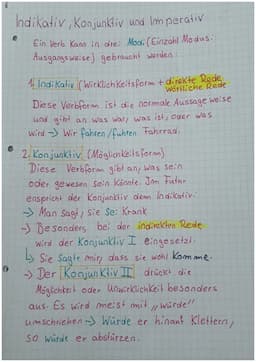 Indikativ, Konjunktiv und Imperativ
Ein Verb kann in drei Modi (Einzahl Modus:
Ausgangsweise) gebraucht werden:
1. Indikativ (Wirklichkeitsform + direkte Rede
Wörtliche Rede
Diese Verbform ist die normale Aussageweise
und gibt an was war, was ist, oder was
wird → Wir fahren/fuhren Fahrrad.
2. Konjunktiv (Möglichkeitsform)
Diese Verbform gibt an, was sein
oder gewesen sein könnte. Im Futur
enspricht der Konjunktiv dem Indikativ.
→ Man sagt, sie sei krank
→ Besonders bei der indirekten Rede
wird der Konjunktiv I eingesetzt.
↳ Sie sagte mir, dass sie wohl komme.
→ Der Konjunktiv II drückt die
Möglichkeit oder Unwirklichkeit besonders
aus. Es wird meist mit „würde"
umschrieben → Würde er hinauf klettern,
so würde er abstürzen.